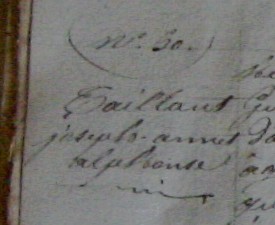 N.º 30.
Taillant
joseph-annet
alphonse